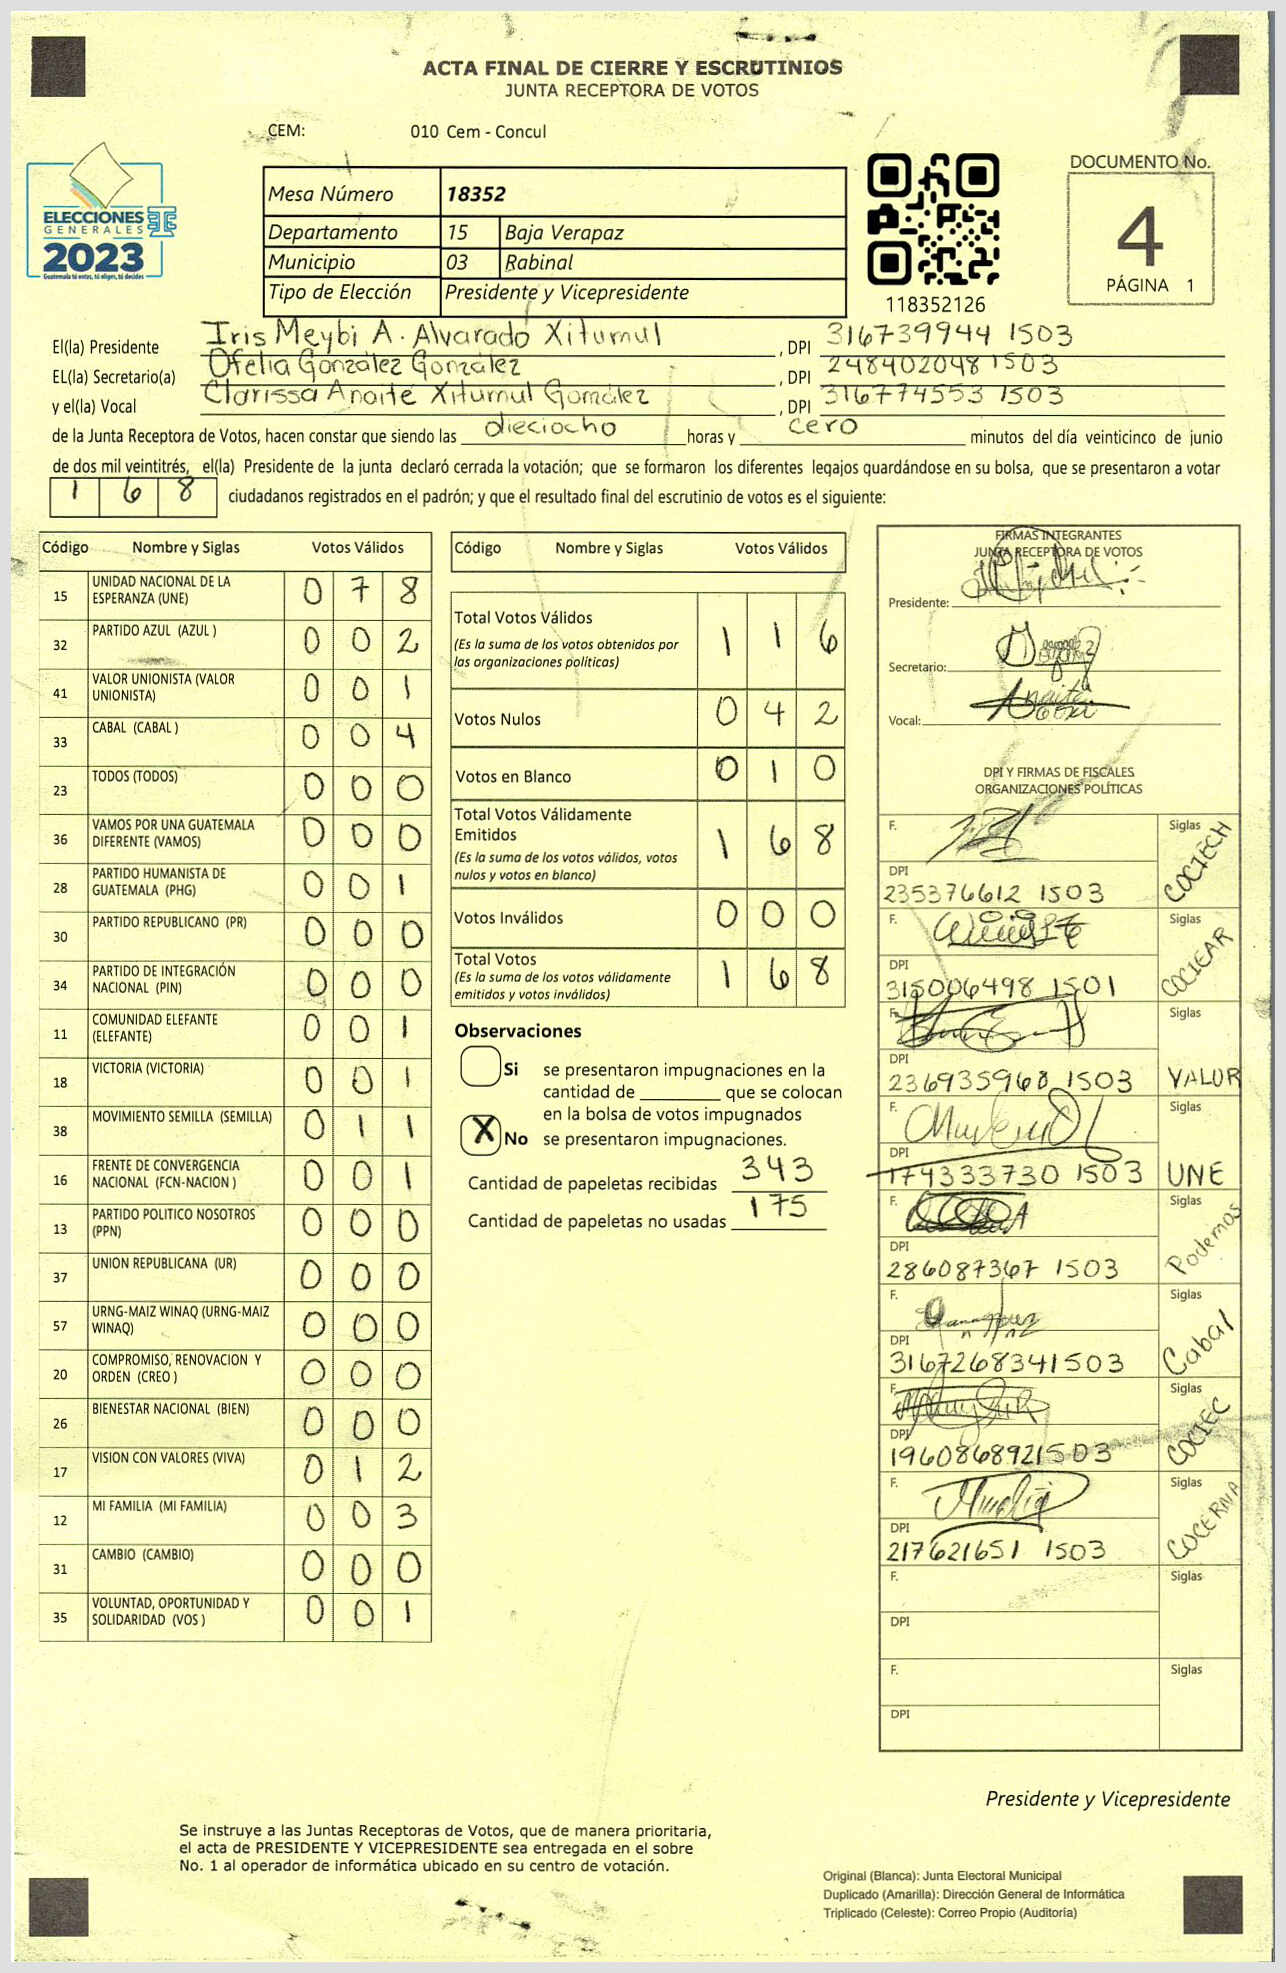 ACTA FINAL DE CIERRE Y ESCRUTINIOS
JUNTA RECEPTORA DE VOTOS
CEM: 010 Cem - Concul
ELECCIONES
GENERALES
2023
Guatemala tú entos, tú eliges, tú decides
Mesa Número 18352
Departamento 15 Baja Verapaz
Municipio 03 Rabinal
Tipo de Elección Presidente y Vicepresidente
118352126
DOCUMENTO No.
4
PÁGINA 1
El(la) Presidente Iris Meybi A. Alvarado Xitumul , DPI 316739944 1503
EL(la) Secretario(a) Ofelia González González , DPI 248402048 1503
y el(la) Vocal Clarissa Anaité Xitumul González , DPI 316774553 1503
de la Junta Receptora de Votos, hacen constar que siendo las dieciocho horas y cero minutos del día veinticinco de junio
de dos mil veintitrés, el(la) Presidente de la junta declaró cerrada la votación; que se formaron los diferentes legajos guardándose en su bolsa, que se presentaron a votar
1 6 8 ciudadanos registrados en el padrón; y que el resultado final del escrutinio de votos es el siguiente:
Código Nombre y Siglas Votos Válidos
15 UNIDAD NACIONAL DE LA ESPERANZA (UNE) 0 7 8
32 PARTIDO AZUL (AZUL ) 0 0 2
41 VALOR UNIONISTA (VALOR UNIONISTA) 0 0 1
33 CABAL (CABAL ) 0 0 4
23 TODOS (TODOS) 0 0 0
36 VAMOS POR UNA GUATEMALA DIFERENTE (VAMOS) 0 0 0
28 PARTIDO HUMANISTA DE GUATEMALA (PHG) 0 0 1
30 PARTIDO REPUBLICANO (PR) 0 0 0
34 PARTIDO DE INTEGRACIÓN NACIONAL (PIN) 0 0 0
11 COMUNIDAD ELEFANTE (ELEFANTE) 0 0 1
18 VICTORIA (VICTORIA) 0 0 1
38 MOVIMIENTO SEMILLA (SEMILLA) 0 1 1
16 FRENTE DE CONVERGENCIA NACIONAL (FCN-NACION ) 0 0 1
13 PARTIDO POLITICO NOSOTROS (PPN) 0 0 0
37 UNION REPUBLICANA (UR) 0 0 0
57 URNG-MAIZ WINAQ (URNG-MAIZ WINAQ) 0 0 0
20 COMPROMISO, RENOVACION Y ORDEN (CREO ) 0 0 0
26 BIENESTAR NACIONAL (BIEN) 0 0 0
17 VISION CON VALORES (VIVA) 0 1 2
12 MI FAMILIA (MI FAMILIA) 0 0 3
31 CAMBIO (CAMBIO) 0 0 0
35 VOLUNTAD, OPORTUNIDAD Y SOLIDARIDAD (VOS ) 0 0 1
Código Nombre y Siglas Votos Válidos
Total Votos Válidos 1 1 6
(Es la suma de los votos obtenidos por
las organizaciones políticas)
Votos Nulos 0 4 2
Votos en Blanco 0 1 0
Total Votos Válidamente
Emitidos 1 6 8
(Es la suma de los votos válidos, votos
nulos y votos en blanco)
Votos Inválidos 0 0 0
Total Votos 1 6 8
(Es la suma de los votos válidamente
emitidos y votos inválidos)
Observaciones
Si se presentaron impugnaciones en la
cantidad de ________ que se colocan
en la bolsa de votos impugnados
X No se presentaron impugnaciones.
Cantidad de papeletas recibidas 343
Cantidad de papeletas no usadas 175
FIRMAS INTEGRANTES
JUNTA RECEPTORA DE VOTOS
Presidente:
Secretario:
Vocal:
DPI Y FIRMAS DE FISCALES
ORGANIZACIONES POLÍTICAS
F. Siglas COCIECH
DPI 235376612 1503
F. Siglas COCIEAR
DPI 315006498 1501
F. Siglas VALOR
DPI 236935968 1503
F. Siglas UNE
DPI 174333730 1503
F. Siglas Podemos
DPI 286087367 1503
F. Siglas Cabal
DPI 316726834 1503
F. Siglas COCIEC
DPI 196086892 1503
F. Siglas COCERNA
DPI 217621651 1503
F. Siglas
DPI
F. Siglas
DPI
Presidente y Vicepresidente
Se instruye a las Juntas Receptoras de Votos, que de manera prioritaria,
el acta de PRESIDENTE Y VICEPRESIDENTE sea entregada en el sobre
No. 1 al operador de informática ubicado en su centro de votación.
Original (Blanca): Junta Electoral Municipal
Duplicado (Amarilla): Dirección General de Informática
Triplicado (Celeste): Correo Propio (Auditoría)